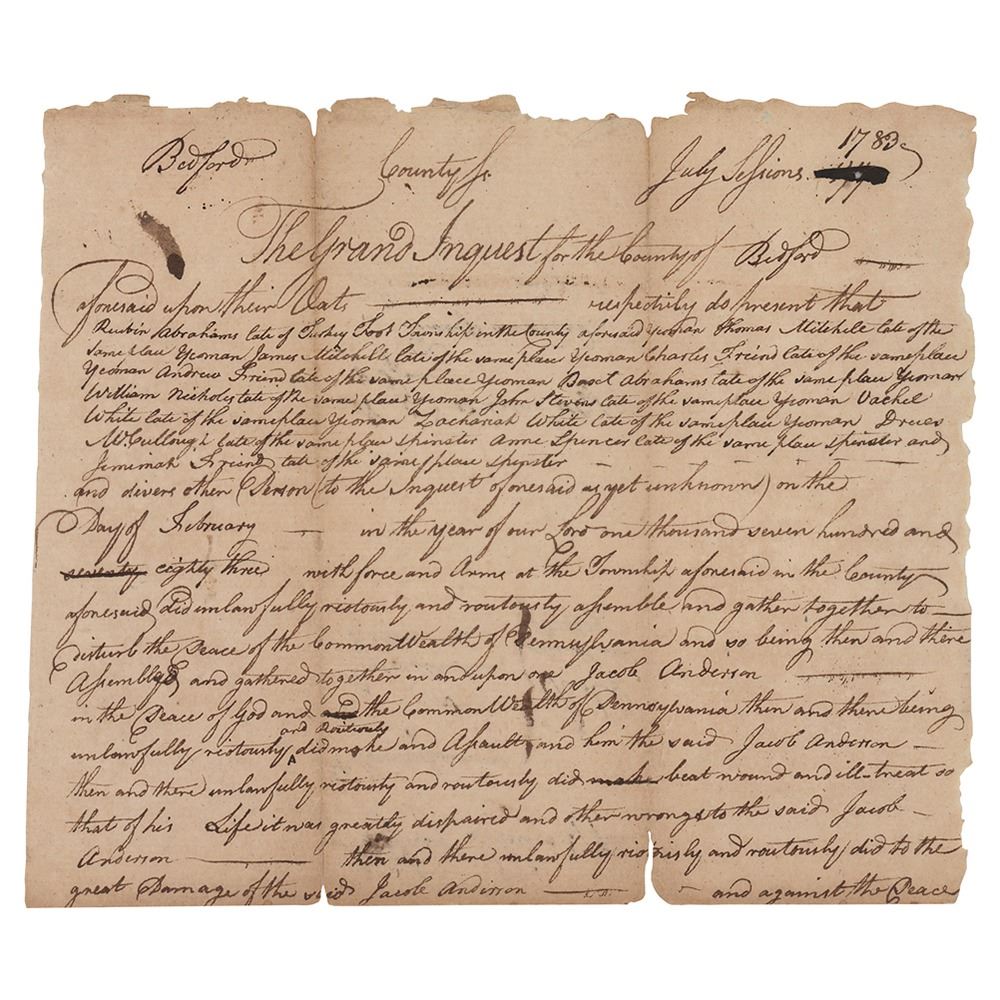 Bedford County Ss. July Sessions 1783
The Grand Inquest for the County of Bedford
aforesaid upon their Oats respectively do present that
Reubin Abrahams late of Turkey Foot Township in the County aforesaid Yeoman Thomas Mitchell late of the
same place Yeoman James Mitchell late of the same place Yeoman Charles Friend late of the same place
Yeoman Andrew Friend late of the same place Yeoman Basel Abrahams late of the same place Yeoman
William Nicholes late of the same place Yeoman John Stevens late of the same place Yeoman Vachel
White late of the same place Yeoman Zachariah White late of the same place Yeoman
McCullough late of the same place Spinster Anne Spencer late of the same place Spinster and
Jemimah Friend late of the same place Spinster
and divers other Person (to the Inquest aforesaid as yet unknown) on the
Day of February in the year of our Lord one thousand seven hundred and
seventy eighty three with force and Arms at the Township aforesaid in the County
aforesaid did unlawfully riotously and routously assemble and gather together to
disturb the Peace of the CommonWealth of Pennsylvania and so being then and there
Assembled and gathered together in and upon one Jacob Anderson
in the Peace of God and and the CommonWealth of Pennsylvania then and there being
and Routously
unlawfully riotously did make and Assault and him the said Jacob Anderson
then and there unlawfully riotously and routously did make beat wound and ill-treat so
that of his Life it was greatly dispaired and other wrongs to the said Jacob
Anderson then and there unlawfully riotously and routously did to the
great Damage of the said Jacob Anderson and against the Peace